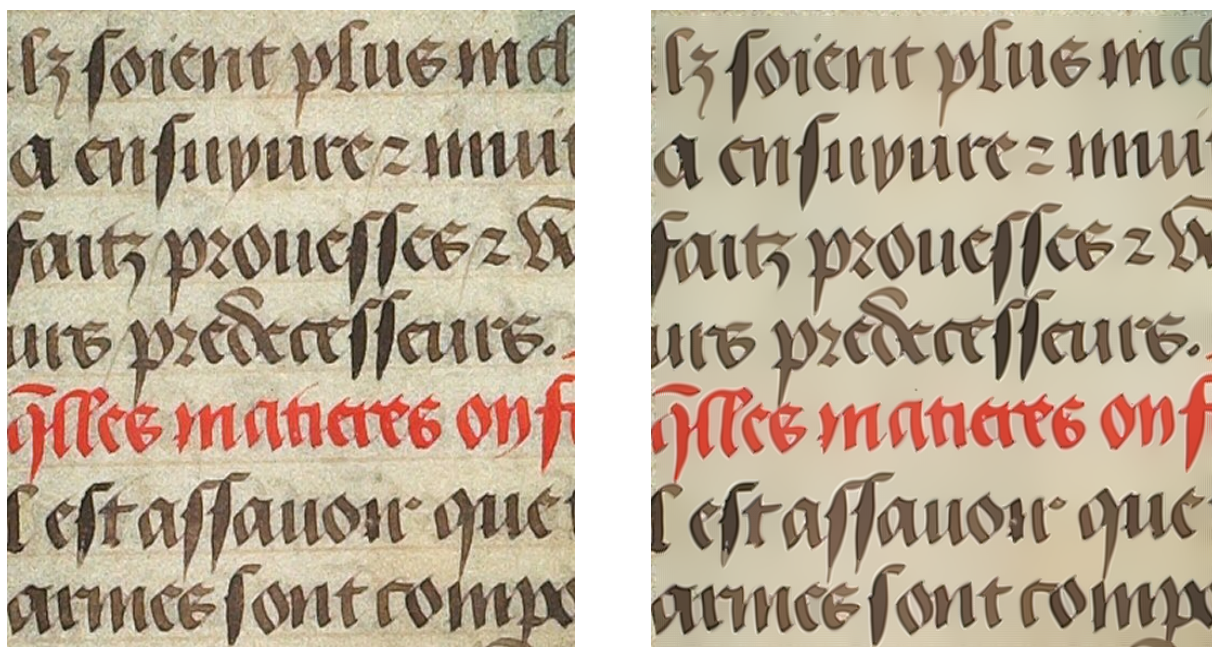 lz soient plus
a ensuyure ⁊
faitz prouesses ⁊
urs predecesseurs.
q̃lles matieres on
l est assauoir que
armes sont compo
lz soient plus
a ensuyure ⁊
faitz prouesses ⁊
urs predecesseurs.
q̃lles matieres on
l est assauoir que
armes sont compo